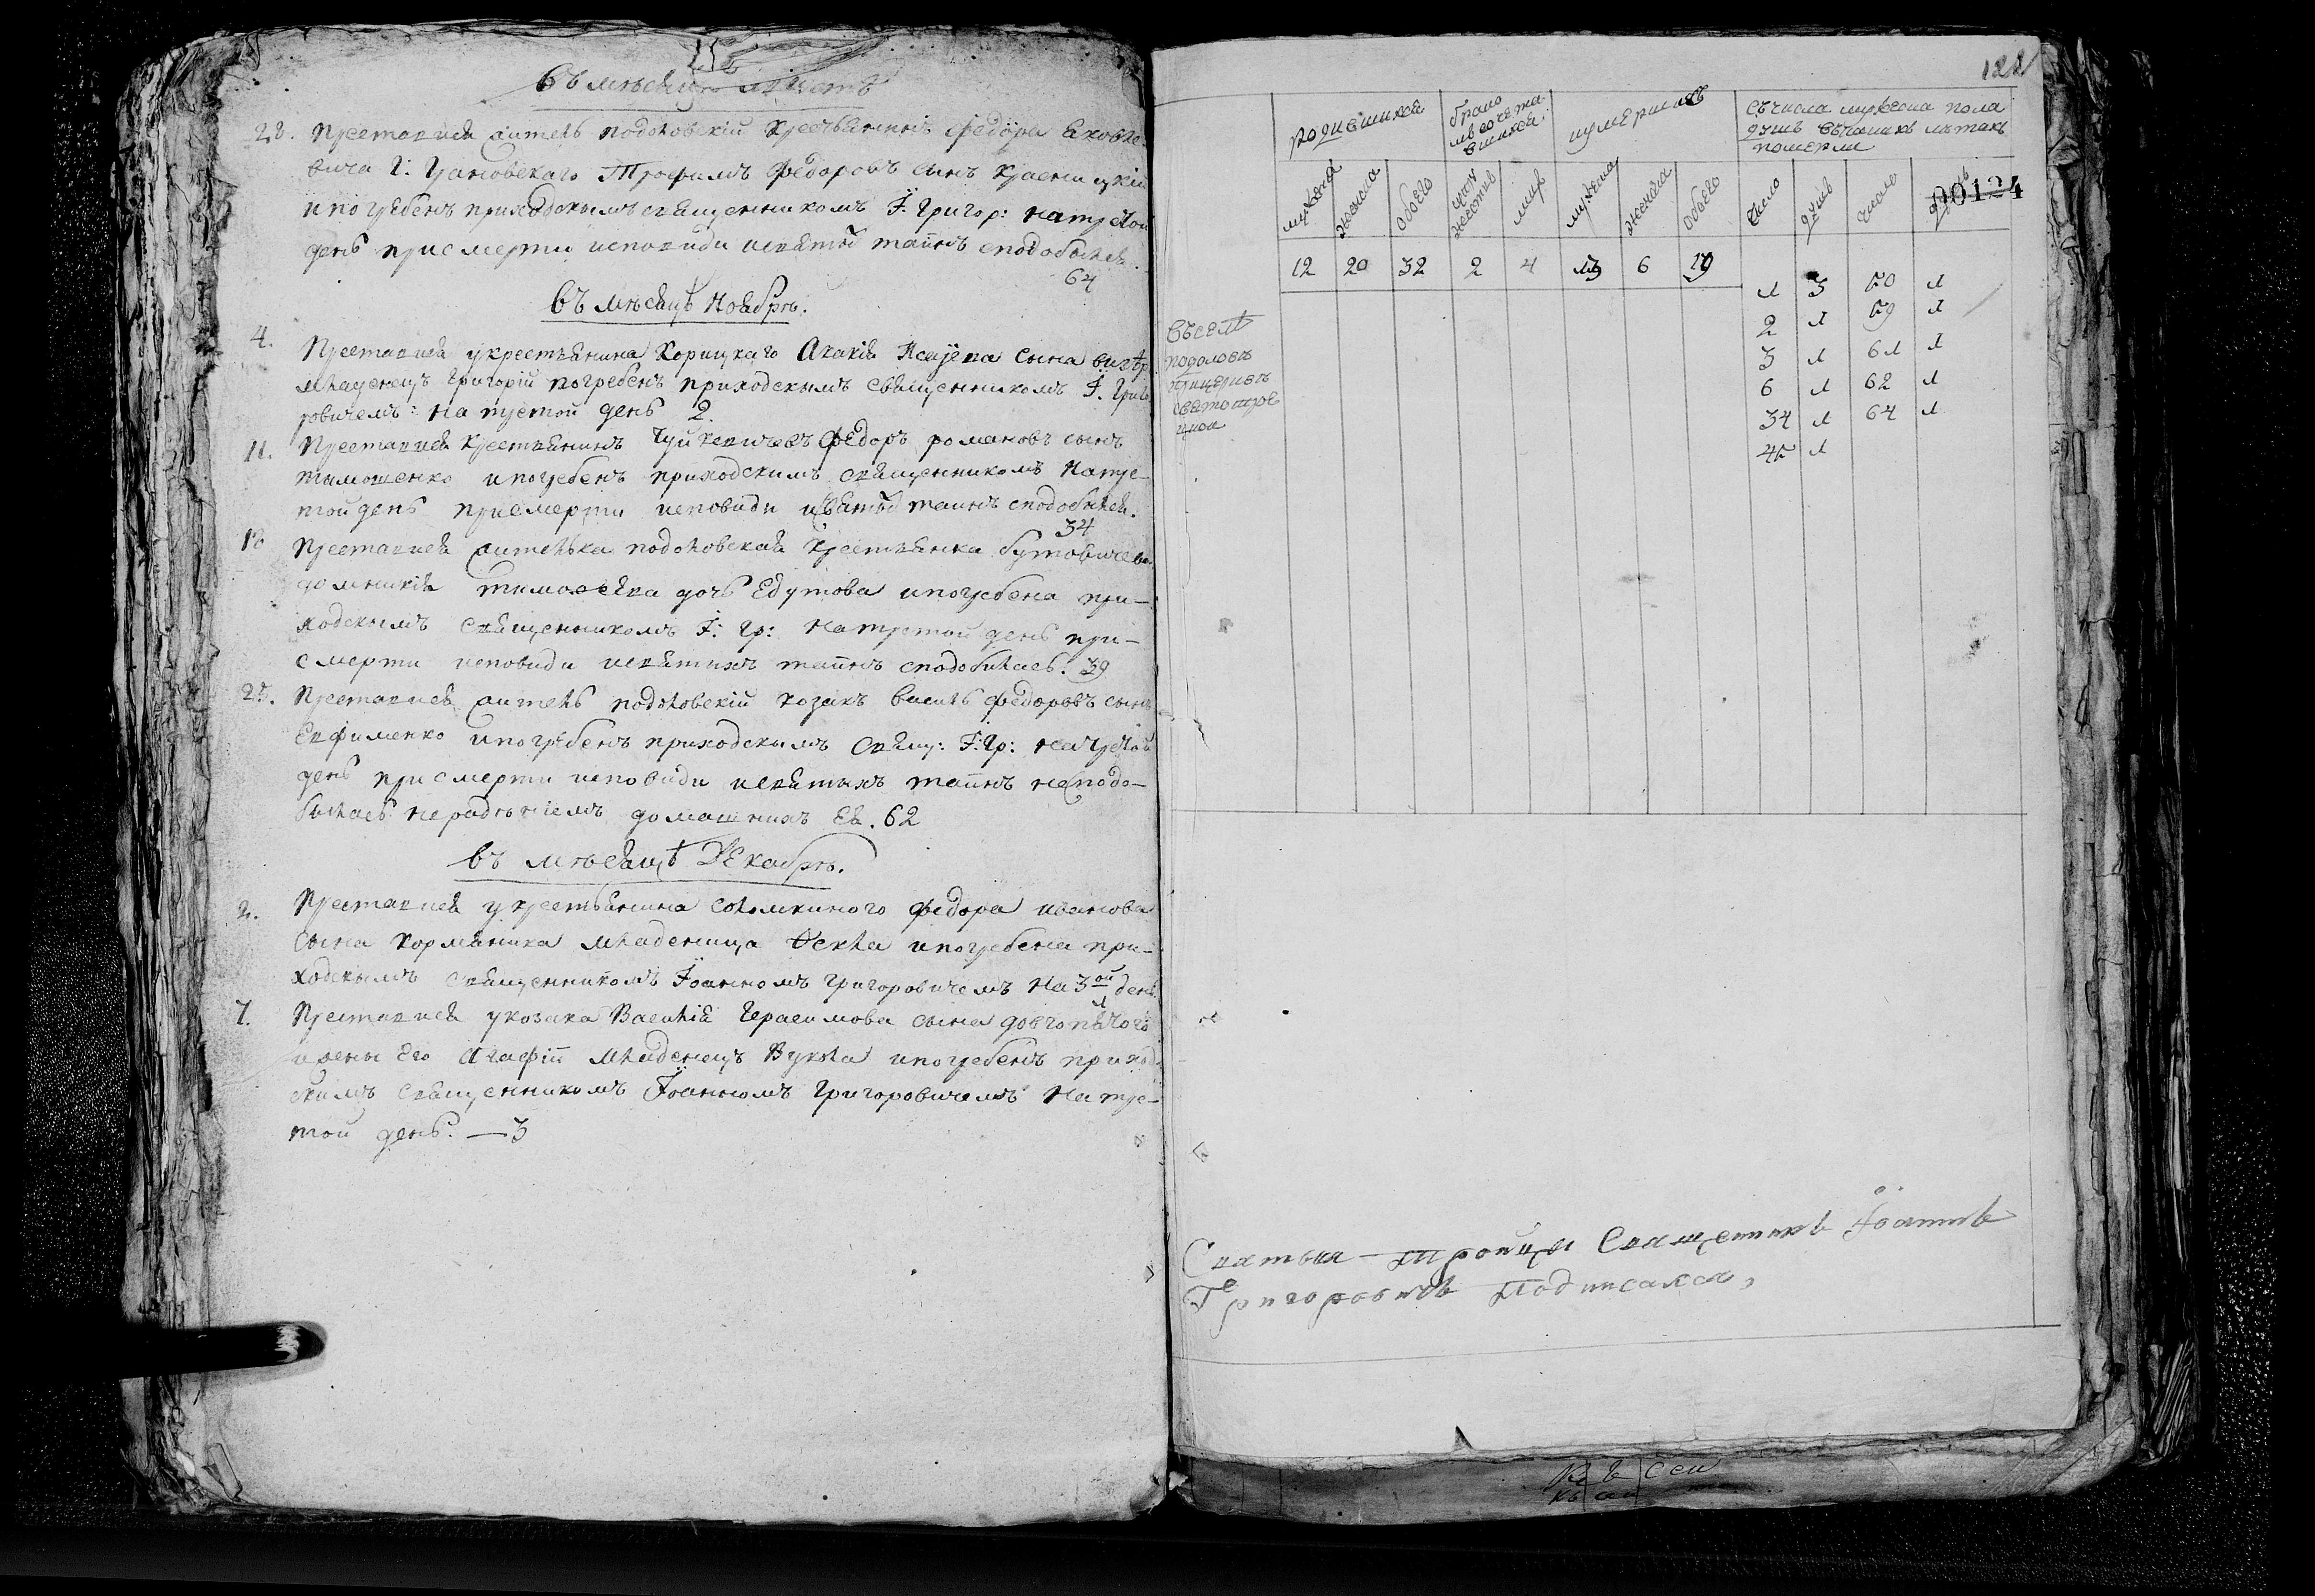 въ мѣсяцѣ
28. Преставися житель подоловскій крестьянинъ Федора Яковле
вича Г: Цановскаго Трофимъ Федоровъ сынъ
и погребенъ приходскымъ священникомъ І: Григор: на третой
день при смерти исповиди и святыхъ тайнъ сподобылся.
64
въ мѣсяцѣ Ноябрѣ.
4. Преставися у крестьянина Корицкаго Акакія сына
младенецъ Григорій погребенъ приходскымъ священникомъ І. Григо
ровичемъ: на третой день 2
11. Преставися крестьянинъ Чуйкевичевъ Федоръ романовъ сынъ
тимошенко и погребенъ приходскимъ священникомъ на тре-
той день при смерти исповиди и святыхъ таинъ сподобился.
34
18 Преставися жителька подоловская крестьянка бутовичева
домникія дочь и погребена при-
ходскымъ священникомъ І: Гр: на третой день при-
смерти исповиди и святихъ тайнъ сподобилась. 39
25. Преставися житель подоловскій козакъ василь федоровъ сынъ
Евфименко и погребенъ приходскымъ свящ: І: Гр: на третой
день при смерти исповиди и святыхъ тайнъ несподо-
былась нерадѣніемъ домашнихъ Ея. 62
въ мѣсяцѣ Декабрѣ.
2. Преставися у крестьянина Соломкиного федора иванова
сына младеница Фекла и погребена при-
ходскымъ священникомъ Іоанномъ Григоровичемъ на 3ой день
1
7. Преставися у козака Василія Герасимова сына
и жены Его Агафіи младенецъ Вукла и погребенъ приход
скимъ священникомъ Іоанномъ Григоровичемъ на тре-
той день. — 3
122
родившихся
брако
мъ сочета
вшихся
умершихъ
съ числа мужеска пола
душъ въ какихъ лѣтахъ
померли
мужеска женска обоего мужеска женска обоего число душъ число душъ
00124
12 20 32 2 4 13 6 19
1 3 50 1
2 1 59 1
3 1 61 1
6 1 62 1
34 1 64 1
45 1
въ селѣ
подоловъ
прицерквѣ
святотрое
цкой
Святыя Тройцы Священникъ Іоаннъ
Григоровичъ Подписался,